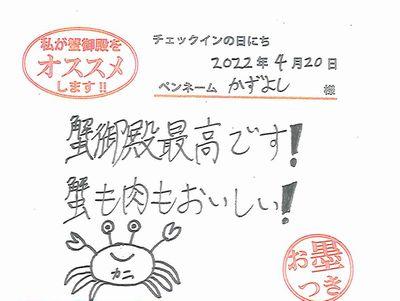 私が蟹御殿を
オススメ
します!!
チェックインの日にち
2022年4月20日
ペンネーム かずよし 様
蟹御殿最高です!
蟹も肉もおいしい!
カニ
お墨
つき